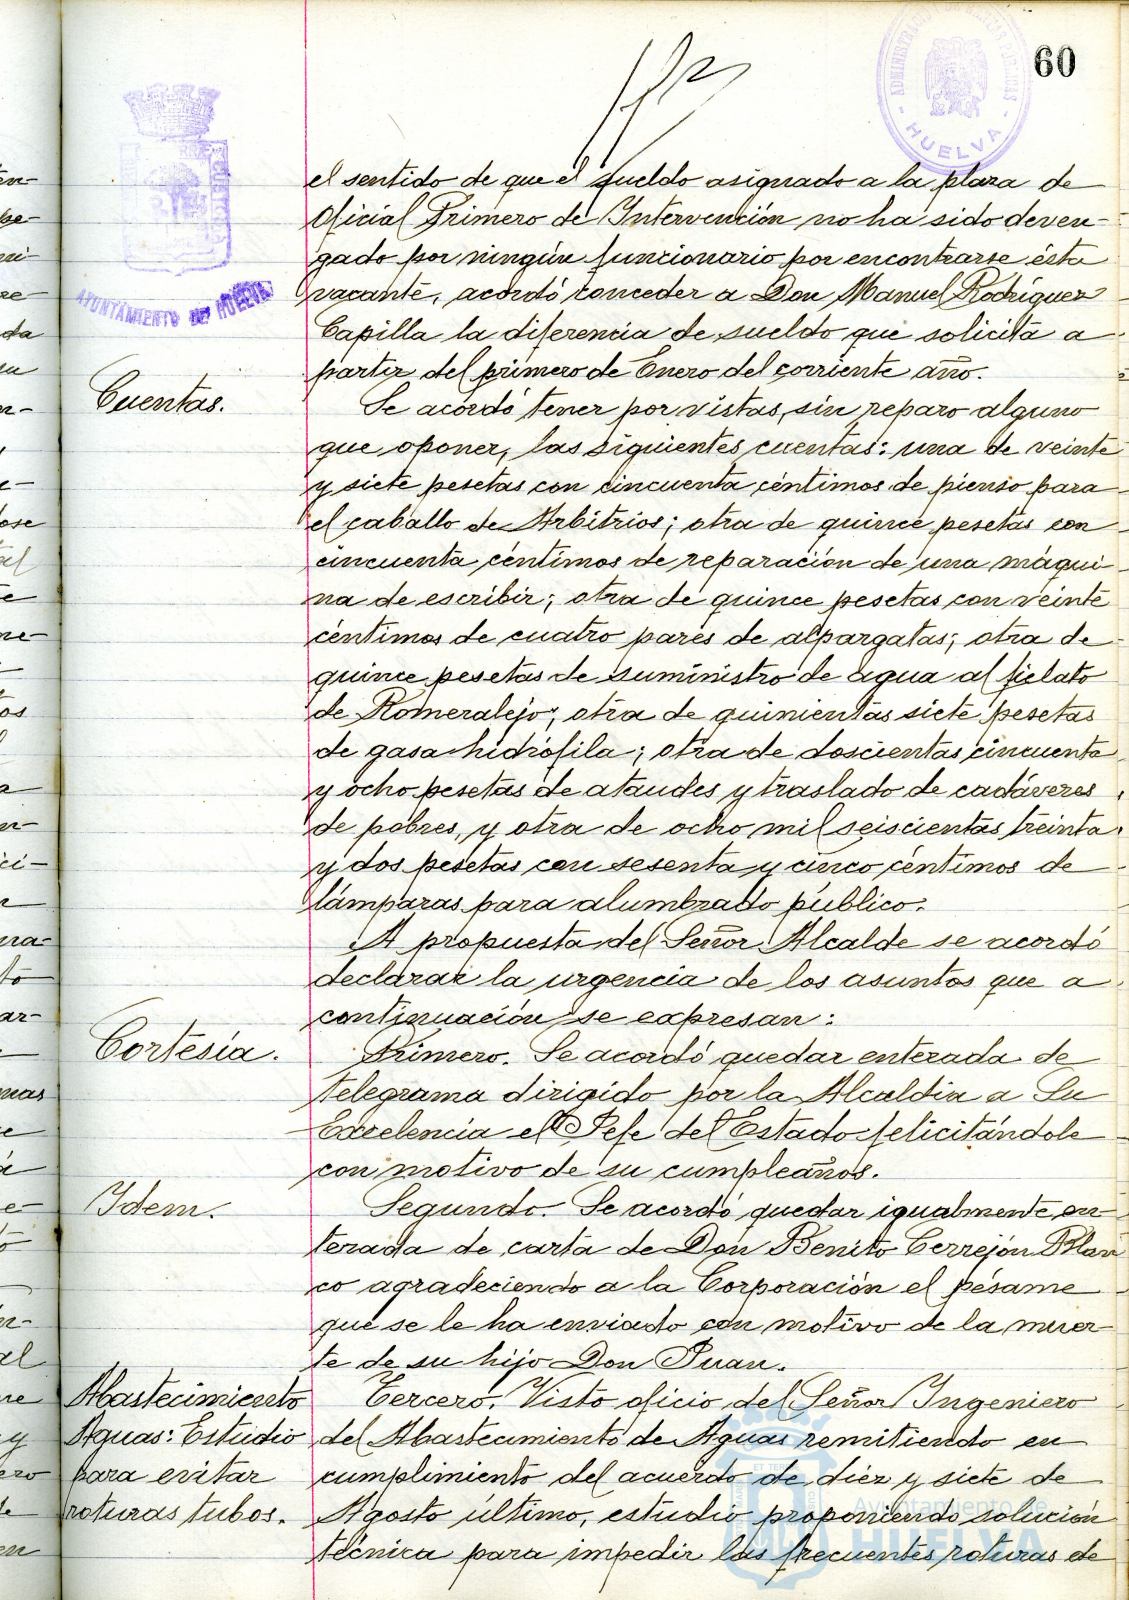 60
ADMINISTRACION DE RENTAS PUBLICAS
HUELVA
AYUNTAMIENTO DE HUELVA
el sentido de que el sueldo asignado a la plaza de
Oficial Primero de Intervención no ha sido deven-
gado por ningún funcionario por encontrarse ésta
vacante, acordó conceder a Don Manuel Rodríguez
Capilla la diferencia de sueldo que solicita a
partir del primero de Enero del corriente año.
Cuentas.
Se acordó tener por vistas, sin reparo alguno
que oponer, las siguientes cuentas: una de veinte
y siete pesetas con cincuenta céntimos de pienso para
el caballo de Arbitrios; otra de quince pesetas con
cincuenta céntimos de reparación de una máqui-
na de escribir; otra de quince pesetas con veinte
céntimos de cuatro pares de alpargatas; otra de
quince pesetas de suministro de agua al fielato
de Romeralejo; otra de quinientas siete pesetas
de gasa hidrófila; otra de doscientas cincuenta
y ocho pesetas de ataudes y traslado de cadáveres
de pobres, y otra de ocho mil seiscientas treinta
y dos pesetas con sesenta y cinco céntimos de
lámparas para alumbrado público.
A propuesta del Señor Alcalde se acordó
declarar la urgencia de los asuntos que a
continuación se expresan:
Cortesía.
Primero. Se acordó quedar enterada de
telegrama dirigido por la Alcaldia a Su
Excelencia el Jefe del Estado felicitándole
con motivo de su cumpleaños.
Idem.
Segundo. Se acordó quedar igualmente en
terada de carta de Don Benito Cerrejón Blan
co agradeciendo a la Corporación el pésame
que se le ha enviado con motivo de la muer
te de su hijo Don Juan.
Abastecimiento
Aguas: Estudio
para evitar
roturas tubos.
Tercero. Visto oficio del Señor Ingeniero
del Abastecimiento de Aguas remitiendo en
cumplimiento del acuerdo de diez y siete de
Agosto último, estudio proponiendo solución
técnica para impedir las frecuentes roturas de
Ayuntamiento de
HUELVA